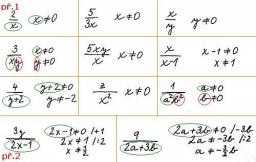 př.1
2/x x≠0
5/3x x≠0
x/y y≠0
3/xy x≠0 y≠0
5xy/x x≠0
x/x-1 x-1≠0 x≠1
4/y+2 y+2≠0 y≠-2
z/x² x≠0
1/a²b² a≠0 b≠0
3y/2x-1 2x-1≠0 /+1
2x≠1 /:2
x≠1/2
9/2a+3b 2a+3b≠0 /-3b
2a≠-3b /:2
a≠-3/2b
př.2